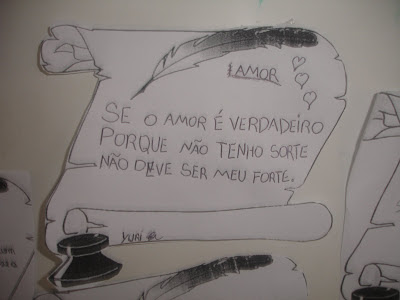 AMOR
SE O AMOR É VERDADEIRO
PORQUE NÃO TENHO SORTE
NÃO DEVE SER MEU FORTE.
YURI